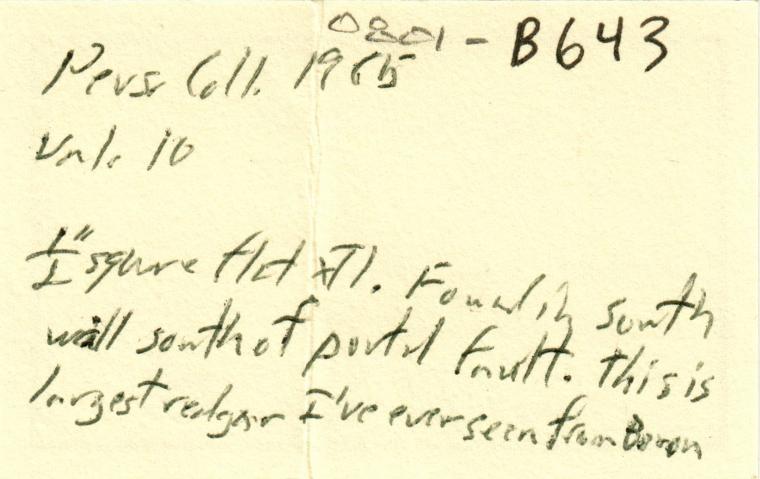 0801 - B643
Pers. Coll. 1965
Val. 10
1/2" square flat xTl. Found in south
wall south of portal fault. This is
largest realgar I've ever seen from Boron